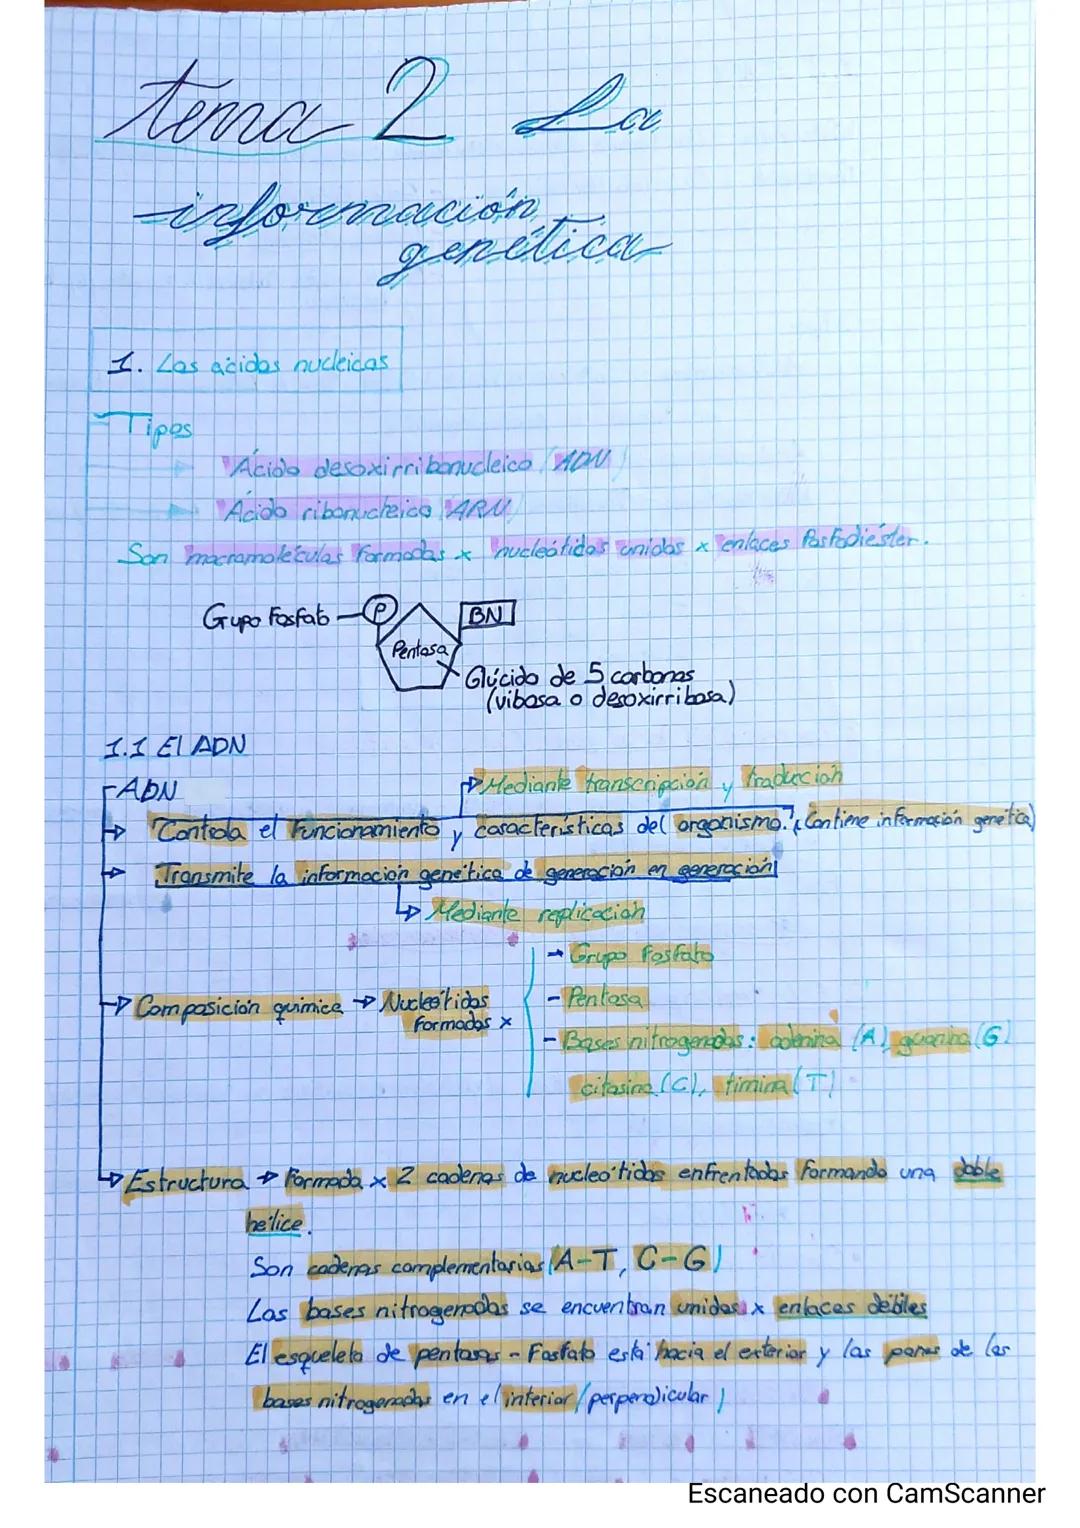 tema 2 La
información
genética
1. Los ácidos nucleicos
Tipos
Ácido desoxirribonucleico (ADN)
Ácido ribonucleico (ARN)
Son macromoléculas formadas x nucleótidos unidos x enlaces fosfodiéster.
Grupo fosfato P BN
Pentosa
Glúcido de 5 carbonos
(ribosa o desoxirribosa)
1.1 El ADN
ADN
Mediante transcripción y traducción
Controla el funcionamiento y características del organismo. (Contiene información genética)
Transmite la información genética de generación en generación
Mediante replicación
- Grupo fosfato
Composición química → Nucleótidos - Pentosa
formados x
- Bases nitrogenadas: adenina (A), guanina (G)
citosina (C), timina (T)
Estructura → Formada x 2 cadenas de nucleótidos enfrentadas formando una doble
hélice.
Son cadenas complementarias (A-T, C-G)
Las bases nitrogenadas se encuentran unidas x enlaces débiles
El esqueleto de pentosas - Fosfato está hacia el exterior y las pares de las
bases nitrogenadas en el interior (perpendicular)
Escaneado con CamScanner